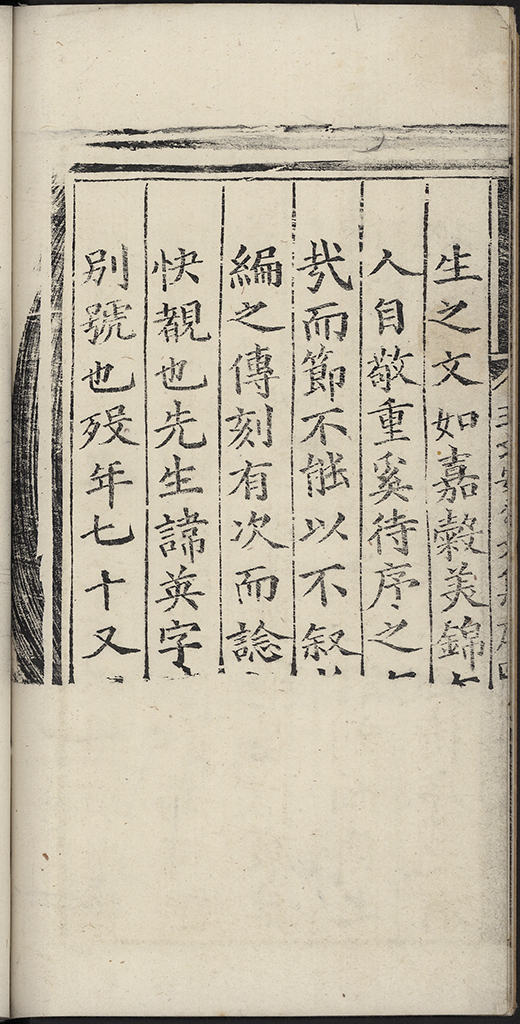 生之文如嘉穀美錦
人自敬重奚待序之
㢤而節不能以不叙
編之傳刻有次而諗
快覩也先生諱英字
別號也歿年七十又